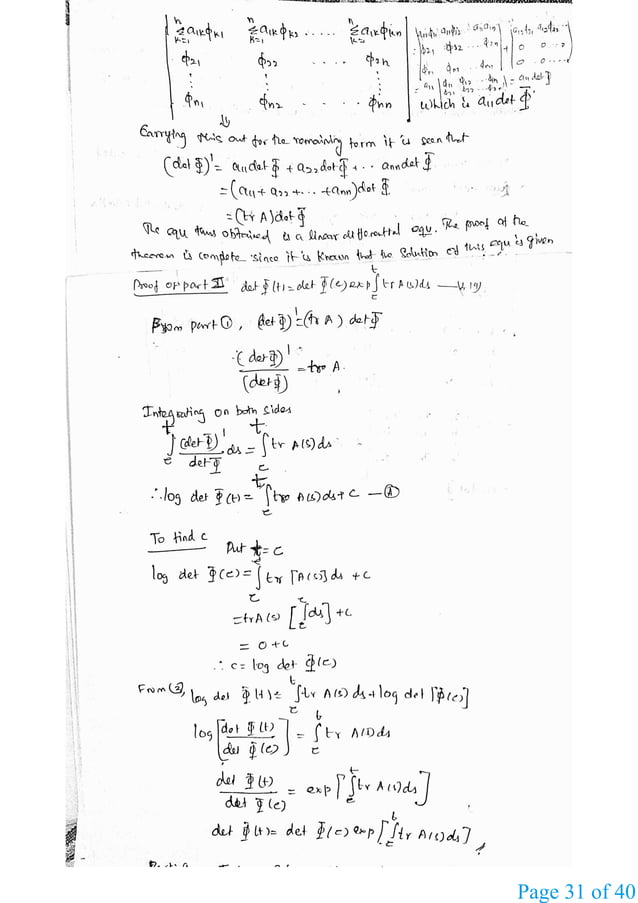 n n n
Σ a1kϕk1 Σ a1kϕk2 ..... Σ a1kϕkn
k=1 k=1
ϕ21 ϕ22 ϕ2n
⋮ ⋮ ⋮
ϕn1 ϕn2 . . . . . ϕnn
which is a11 det Φ
⇓
Carrying this out for the remaining term it is seen that
(det Φ)' = a11 det Φ + a22 det Φ + .. ann det Φ
= (a11 + a22 + .. + ann) det Φ
= (tr A) det Φ
The equ thus obtained is a linear differential equ. The proof of the
theorem is complete since it is known that the solution of this equ is given
Proof of part II det Φ(t) = det Φ(τ) exp ∫τ^t tr A(s) ds
From part ①, (det Φ)' = (tr A) det Φ
(det Φ)' / (det Φ) = tr A.
Integrating on both sides
∫τ^t (det Φ)' / det Φ . ds = ∫τ^t tr A(s) ds
∴ log det Φ(t) = ∫τ^t tr A(s) ds + c — Ⓐ
To find c
Put t = τ
log det Φ(τ) = ∫τ^τ tr [A(s)] ds + c
= tr A(s) [∫τ^τ ds] + c
= 0 + c
∴ c = log det Φ(τ)
From (2), log det Φ(t) = ∫τ^t tr A(s) ds + log det [Φ(τ)]
log [det Φ(t) / det Φ(τ)] = ∫τ^t tr A(s) ds
det Φ(t) / det Φ(τ) = exp [∫τ^t tr A(s) ds]
det Φ(t) = det Φ(τ) exp [∫τ^t tr A(s) ds]
Page 31 of 40